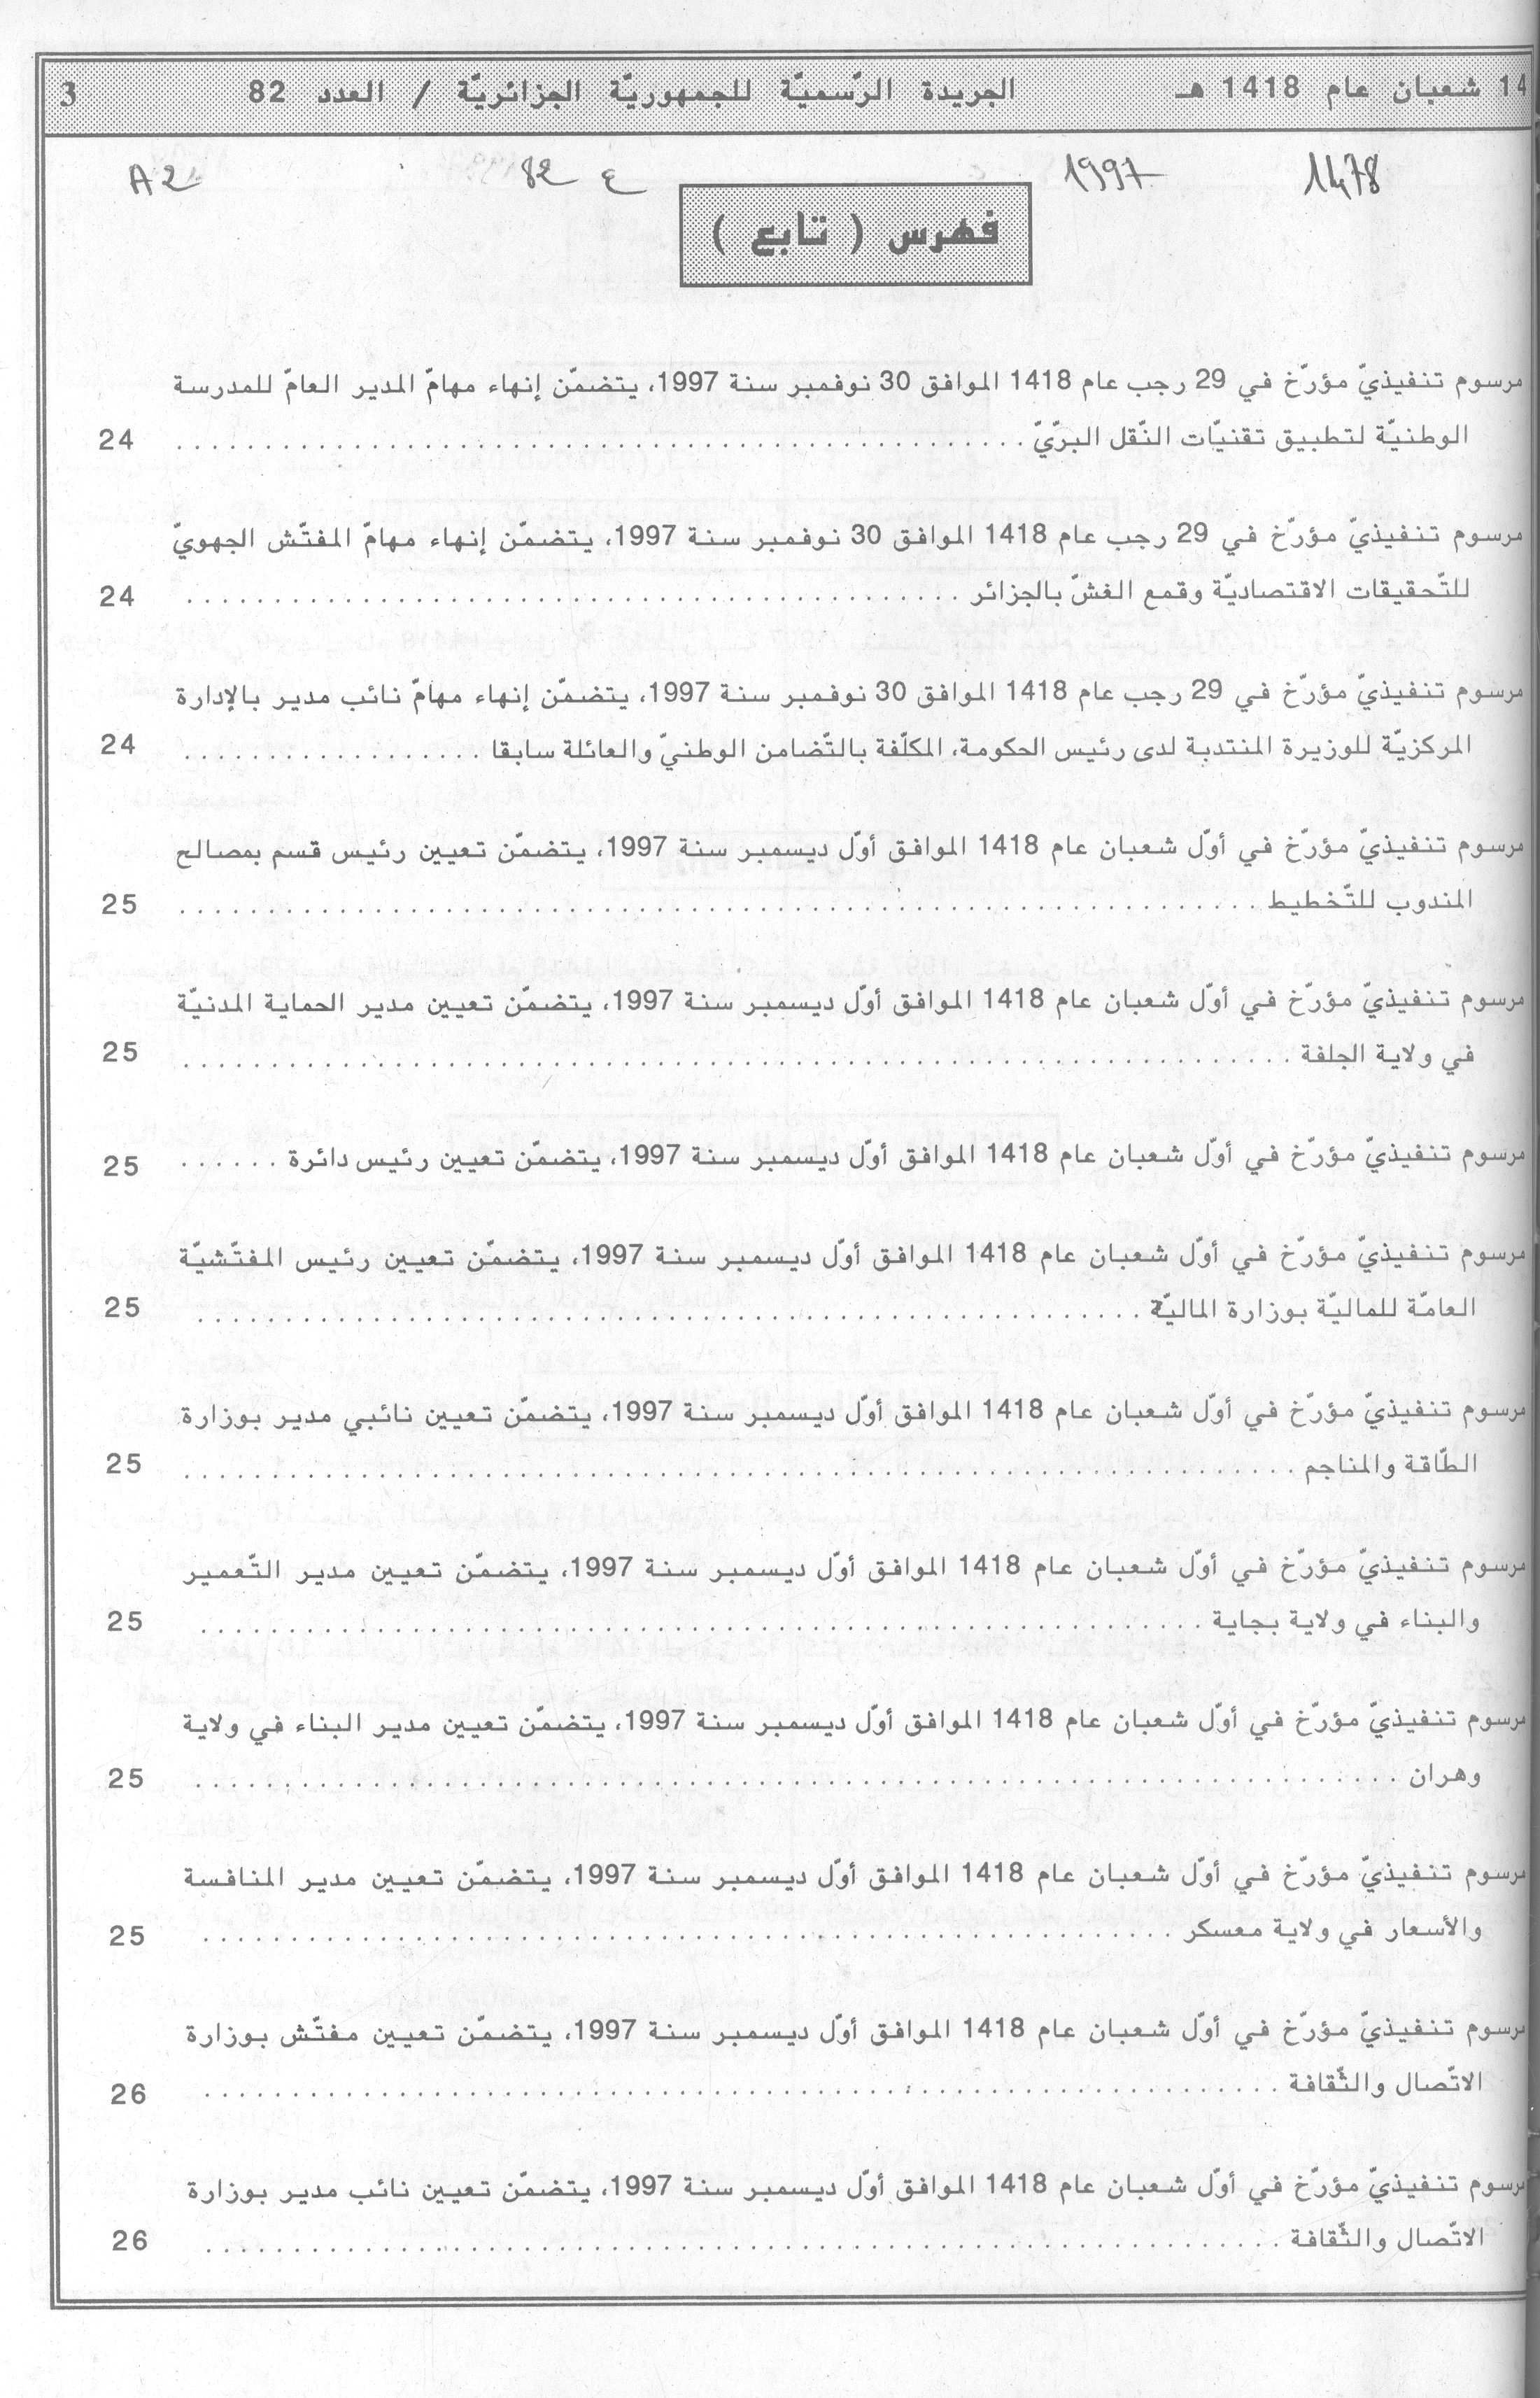 14 شعبان عام 1418 هـ الجريدة الرّسميّة للجمهوريّة الجزائريّة / العدد 82 3
1478 1997 ع 82 A2
فهرس ( تابع )
مرسوم تنفيذيّ مؤرّخ في 29 رجب عام 1418 الموافق 30 نوفمبر سنة 1997، يتضمّن إنهاء مهامّ المدير العامّ للمدرسة
الوطنيّة لتطبيق تقنيّات النّقل البرّيّ 24
مرسوم تنفيذيّ مؤرّخ في 29 رجب عام 1418 الموافق 30 نوفمبر سنة 1997، يتضمّن إنهاء مهامّ المفتّش الجهويّ
للتّحقيقات الاقتصاديّة وقمع الغشّ بالجزائر 24
مرسوم تنفيذيّ مؤرّخ في 29 رجب عام 1418 الموافق 30 نوفمبر سنة 1997، يتضمّن إنهاء مهامّ نائب مدير بالإدارة
المركزيّة للوزيرة المنتدبة لدى رئيس الحكومة، المكلّفة بالتّضامن الوطنيّ والعائلة سابقا 24
مرسوم تنفيذيّ مؤرّخ في أوّل شعبان عام 1418 الموافق أوّل ديسمبر سنة 1997، يتضمّن تعيين رئيس قسم بمصالح
المندوب للتّخطيط 25
مرسوم تنفيذيّ مؤرّخ في أوّل شعبان عام 1418 الموافق أوّل ديسمبر سنة 1997، يتضمّن تعيين مدير الحماية المدنيّة
في ولاية الجلفة 25
مرسوم تنفيذيّ مؤرّخ في أوّل شعبان عام 1418 الموافق أوّل ديسمبر سنة 1997، يتضمّن تعيين رئيس دائرة 25
مرسوم تنفيذيّ مؤرّخ في أوّل شعبان عام 1418 الموافق أوّل ديسمبر سنة 1997، يتضمّن تعيين رئيس المفتّشيّة
العامّة للماليّة بوزارة الماليّة 25
مرسوم تنفيذيّ مؤرّخ في أوّل شعبان عام 1418 الموافق أوّل ديسمبر سنة 1997، يتضمّن تعيين نائبي مدير بوزارة
الطّاقة والمناجم 25
مرسوم تنفيذيّ مؤرّخ في أوّل شعبان عام 1418 الموافق أوّل ديسمبر سنة 1997، يتضمّن تعيين مدير التّعمير
والبناء في ولاية بجاية 25
مرسوم تنفيذيّ مؤرّخ في أوّل شعبان عام 1418 الموافق أوّل ديسمبر سنة 1997، يتضمّن تعيين مدير البناء في ولاية
وهران 25
مرسوم تنفيذيّ مؤرّخ في أوّل شعبان عام 1418 الموافق أوّل ديسمبر سنة 1997، يتضمّن تعيين مدير المنافسة
والأسعار في ولاية معسكر 25
مرسوم تنفيذيّ مؤرّخ في أوّل شعبان عام 1418 الموافق أوّل ديسمبر سنة 1997، يتضمّن تعيين مفتّش بوزارة
الاتّصال والثّقافة 26
مرسوم تنفيذيّ مؤرّخ في أوّل شعبان عام 1418 الموافق أوّل ديسمبر سنة 1997، يتضمّن تعيين نائب مدير بوزارة
الاتّصال والثّقافة 26